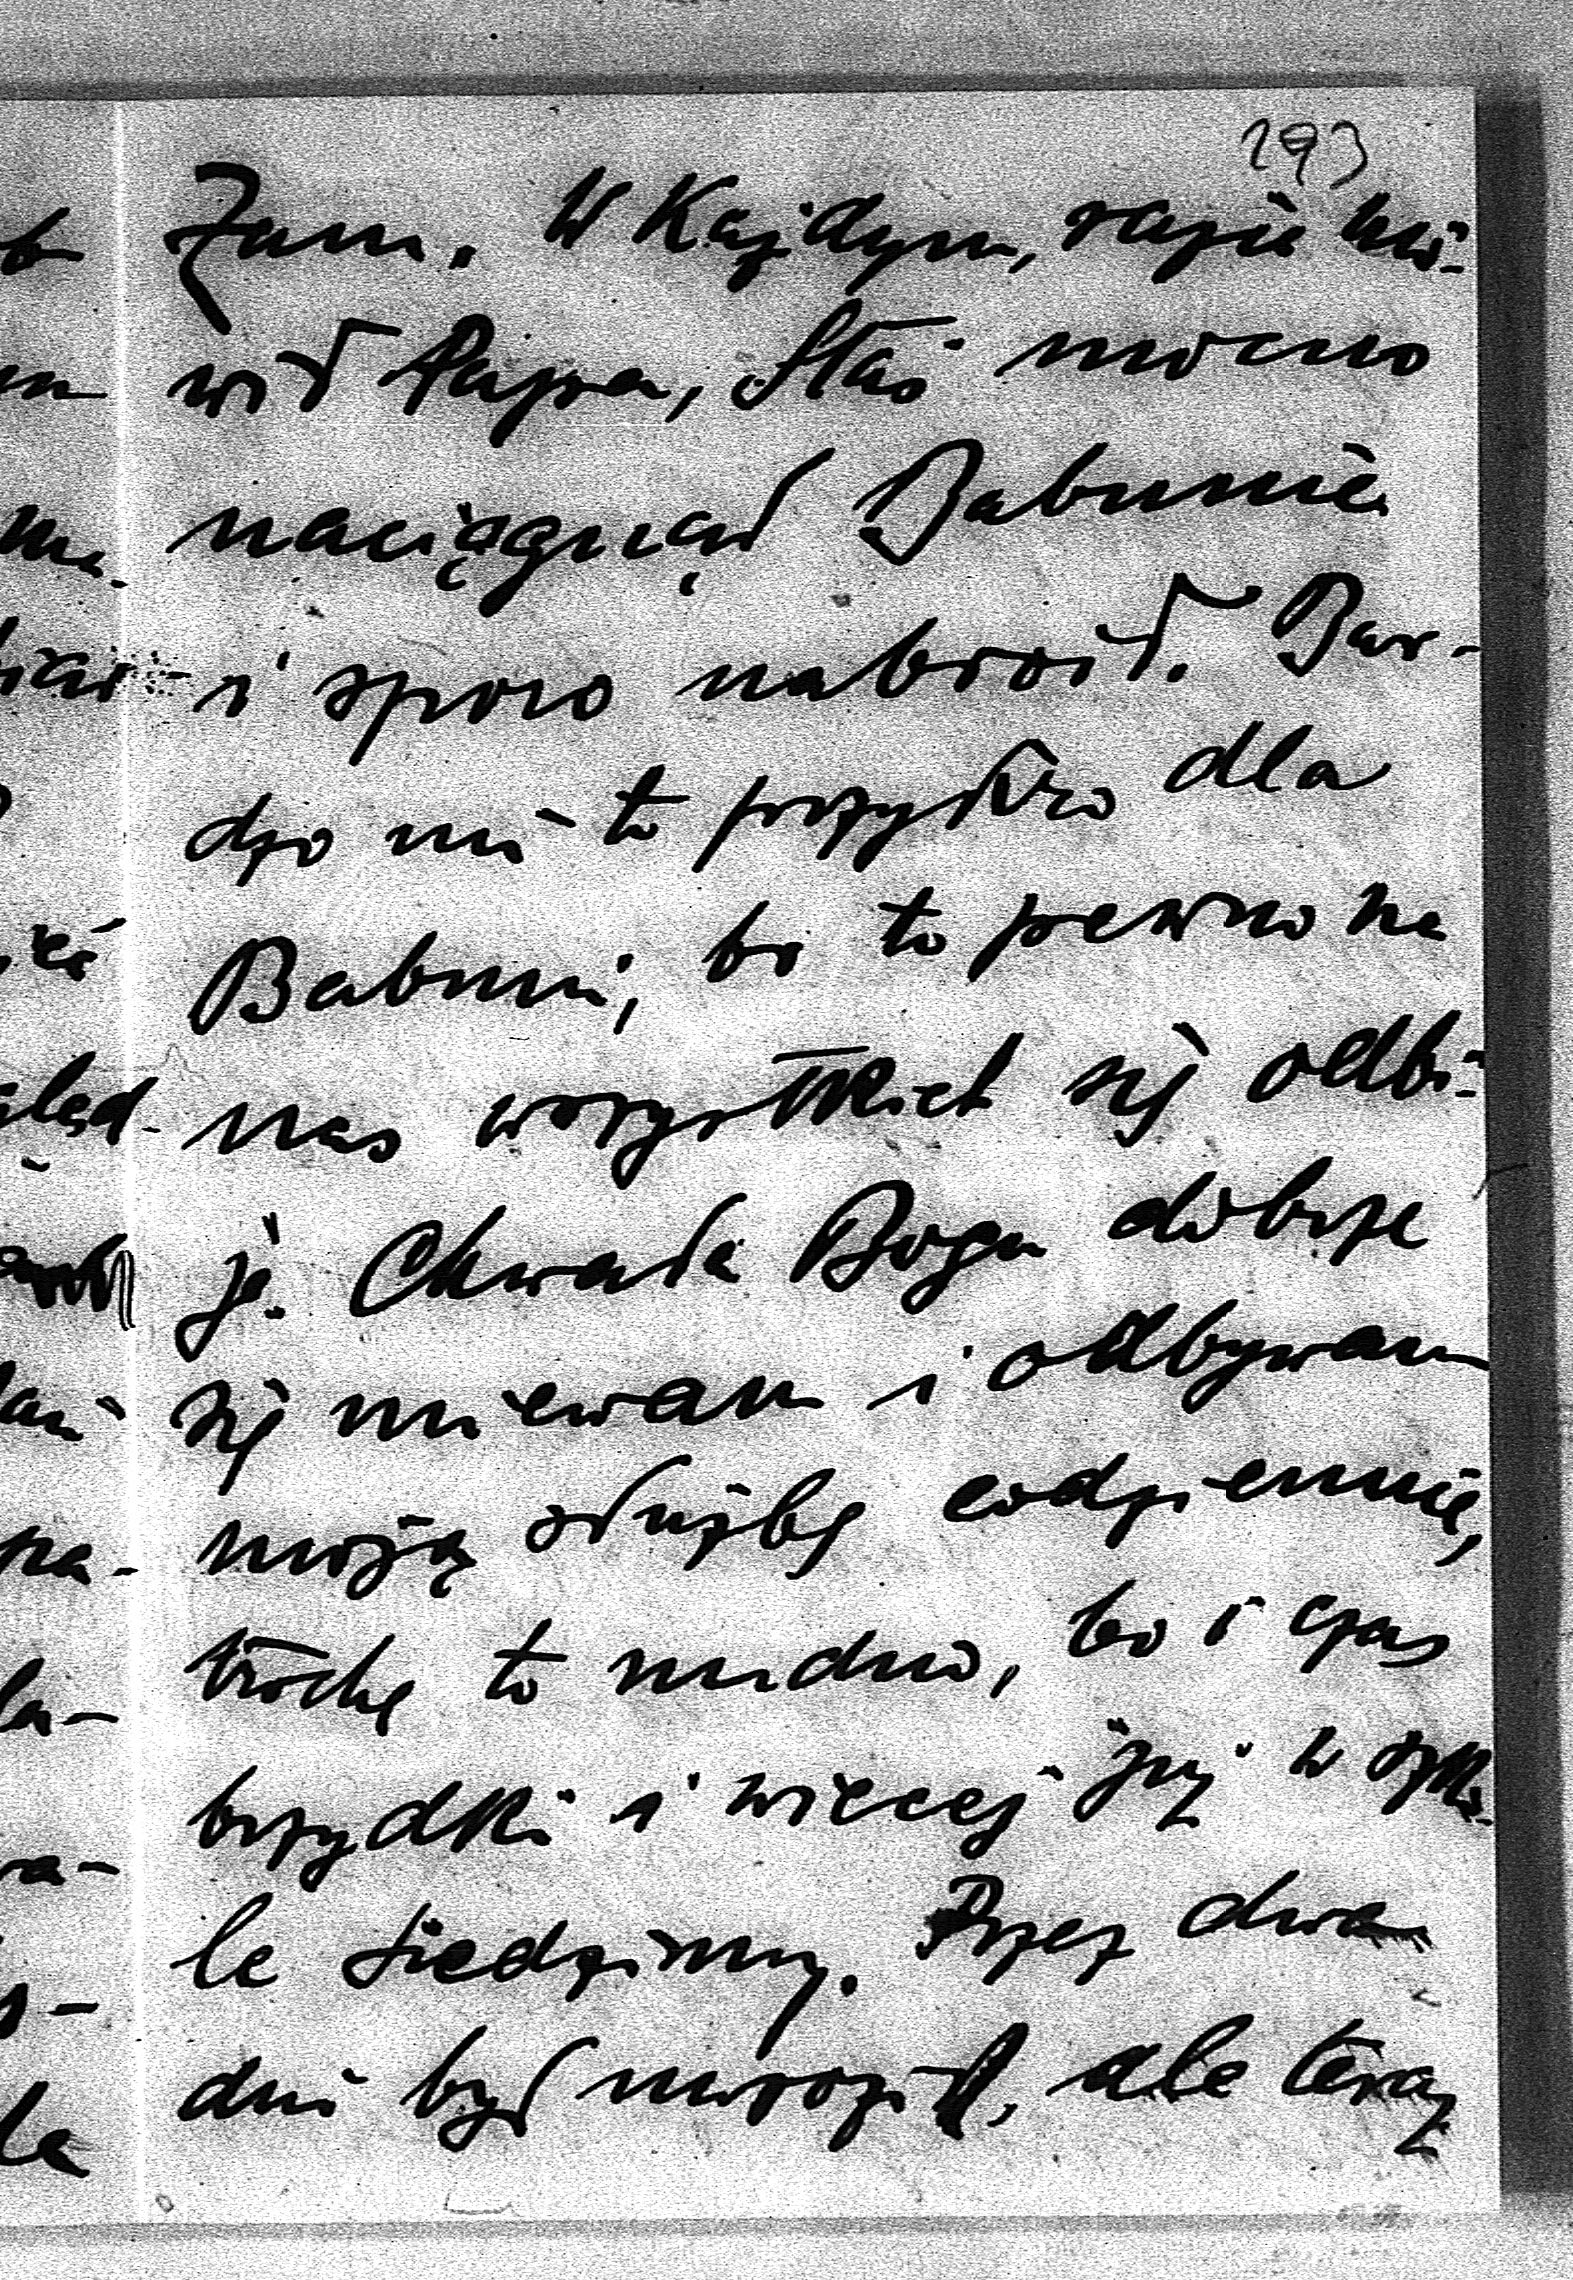 193
żam. W każdym razie mó-
wił Papa, Staś mocno
naciągnął Babunię
i sporo nabroił. Bar-
dzo mi to przykro dla
Babuni, bo to pewno na
nas wszystkich się odbi-
je. Chwała Bogu dobrze
się miewam i odbywam
moją służbę codziennie,
trochę to nudno, bo i czas
brzydki i więcej już w szko-
le siedzimy. Przez dwa
dni był mrozik, ale teraz